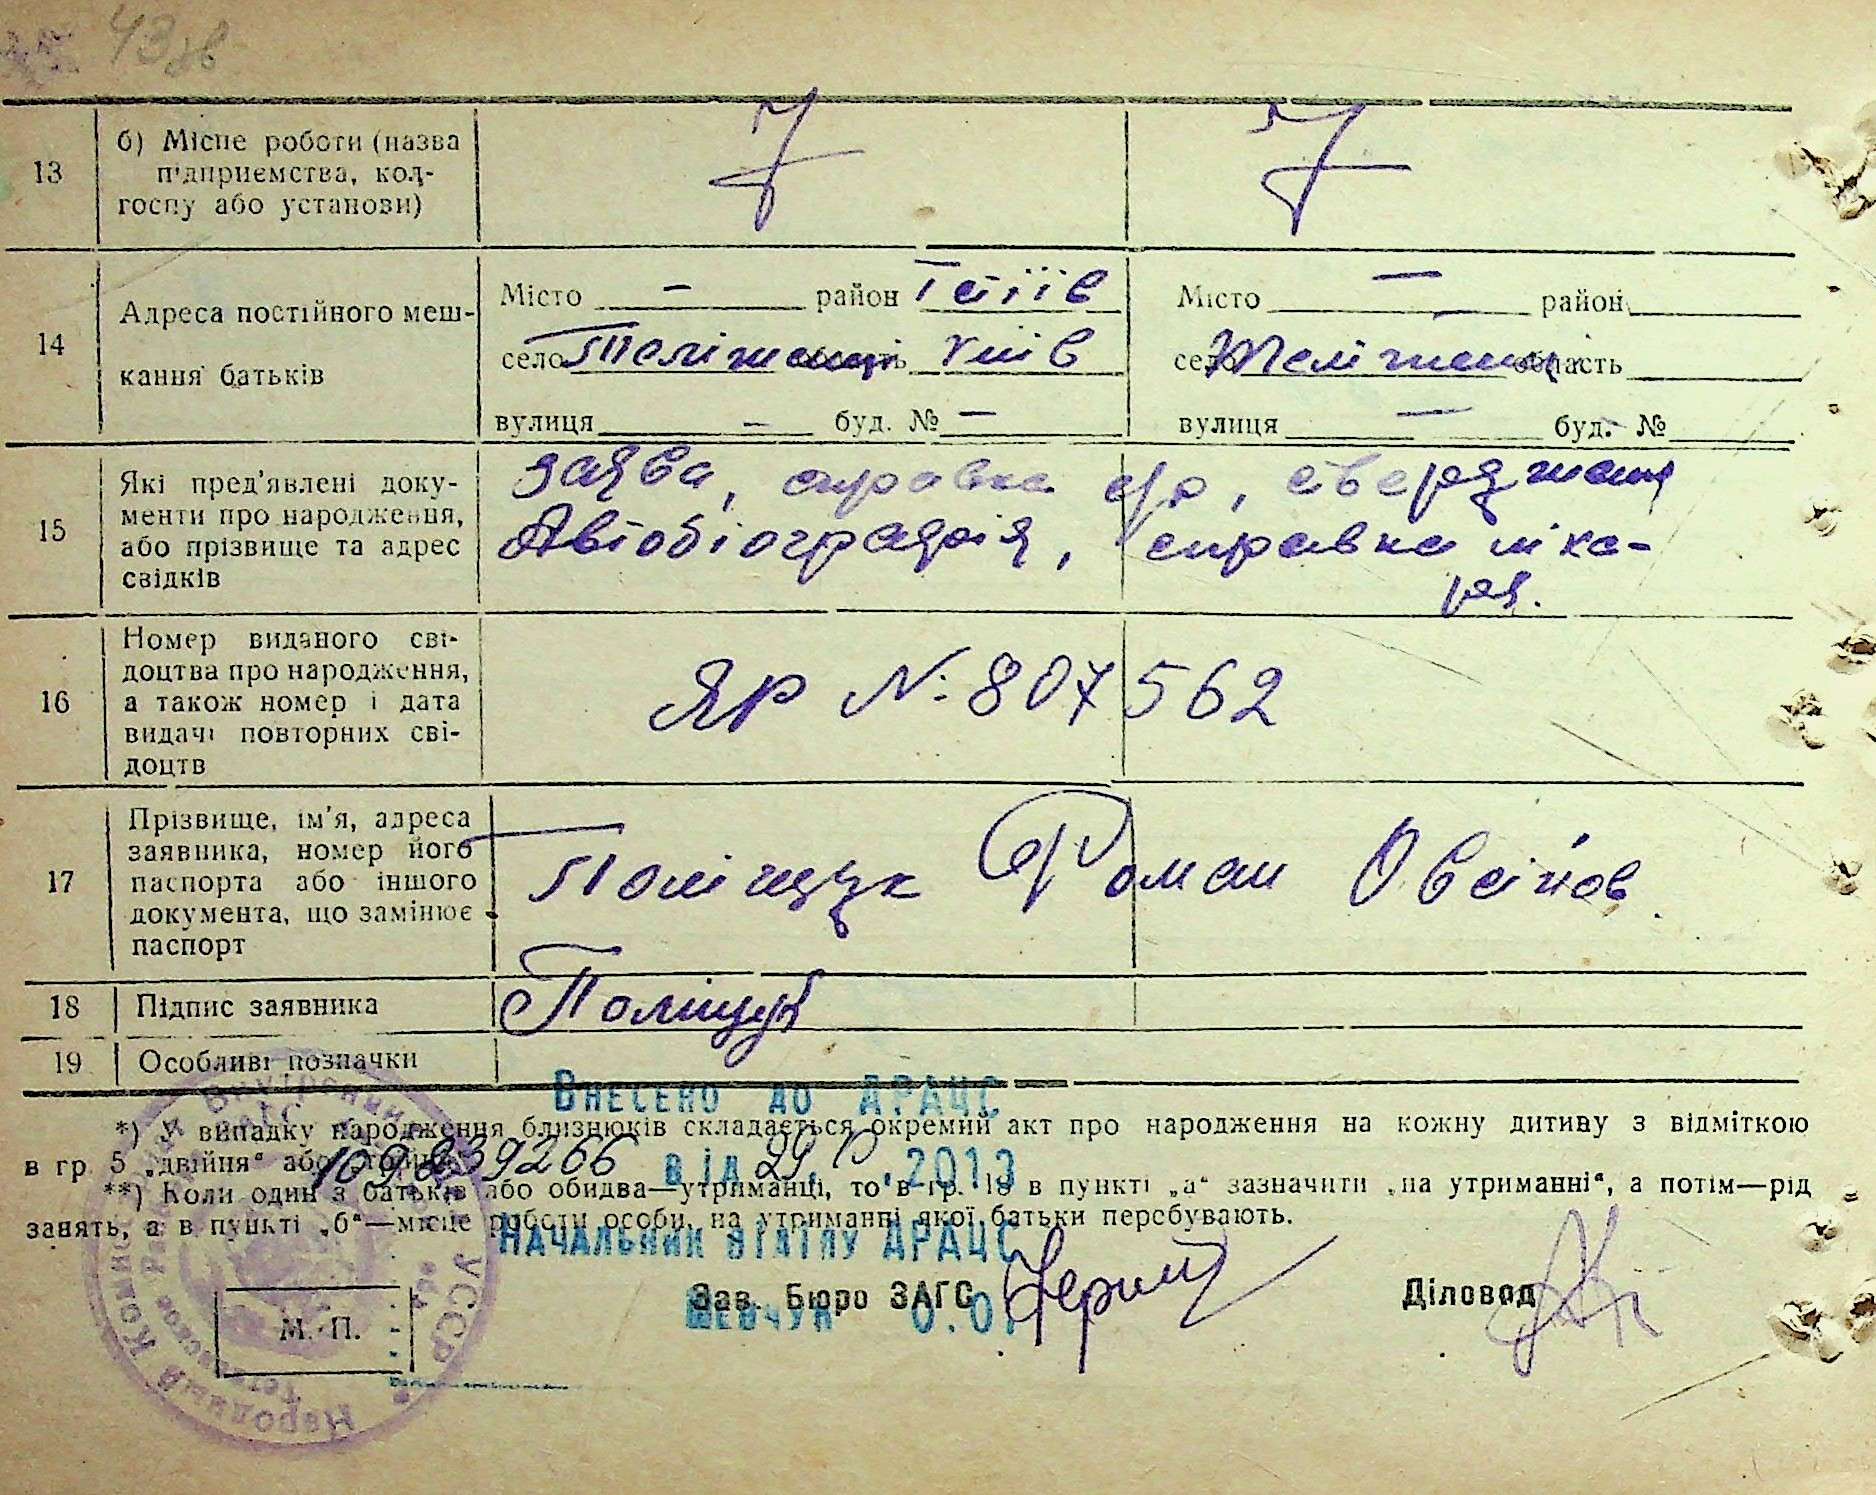 43 зв
13
б) Місце роботи (назва
підприємства, кол-
госпу або установи)
14
Адреса постійного меш-
кання батьків
Місто — район Тетіїв
село Теліженці область Київ
вулиця — буд. № —
Місто — район
село Теліженці область
вулиця — буд. №
15
Які пред'явлені доку-
менти про народження,
або прізвище та адрес
свідків
Заява, справка с/р, свердження
Автобіографія, справка ліка-
ря.
16
Номер виданого сві-
доцтва про народження,
а також номер і дата
видачі повторних сві-
доцтв
ЯР №: 807562
17
Прізвище, ім'я, адреса
заявника, номер його
паспорта або іншого
документа, що замінює
паспорт
Поліщук Роман Овсійов.
18
Підпис заявника
Поліщук
19
Особливі позначки
Внесено до ДРАЦС
*) У випадку народження близнюків складається окремий акт про народження на кожну дитину з відміткою
в гр 5 „двійня“ або
від 29. .2013
**) Коли один з батьків або обидва—утриманці, то в гр. 13 в пункті „а“ зазначити „на утриманні“, а потім—рід
занять, а в пункті „б“—місце роботи особи, на утриманні якої батьки перебувають.
Начальник відділу ДРАЦС
Зав. Бюро ЗАГС
Діловод
Шевчук О.О.
М. П.